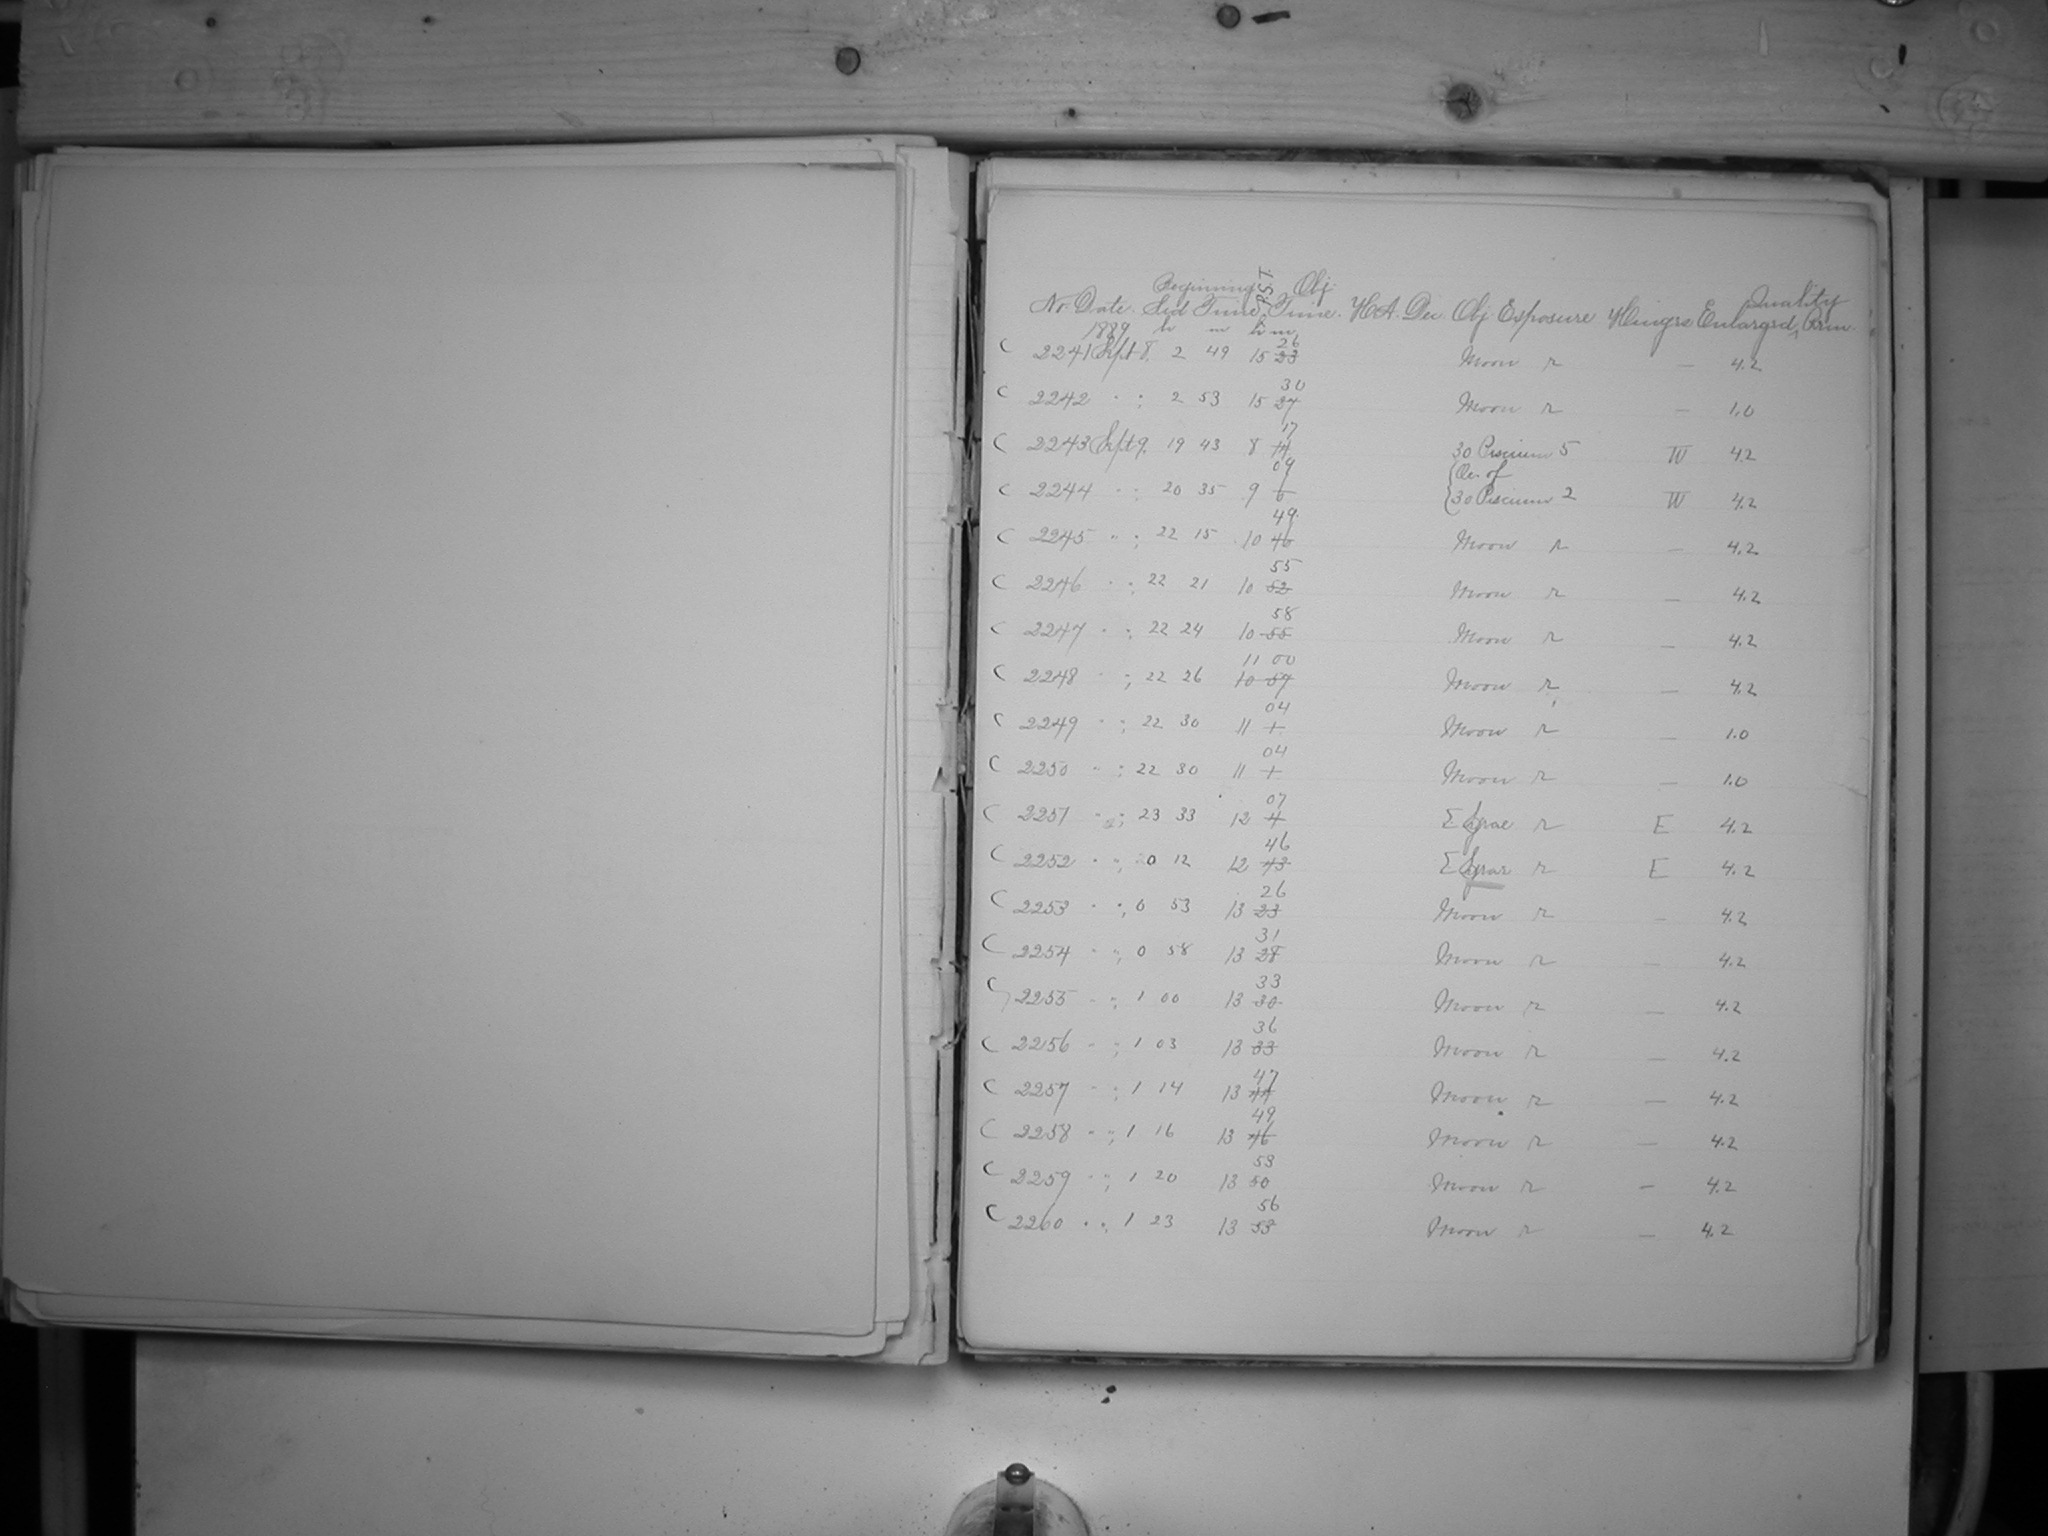 Beginning P.S.T. Obj. Quality
No. Date. Sid Time, Time. H.A. Dec. Obj. Exposure Hinges Enlarged, Rem.
1889 h m h m
26
C 2241 Sept 8. 2 49 15 23 Moon r — 4.2
30
C 2242 " " 2 53 15 27 Moon r — 1.0
17
C 2243 Sept 9. 19 43 8 14 30 Piscium 5 W 4.2
09 Oc. of
C 2244 " " 20 35 9 6 30 Piscium 2 W 4.2
49
C 2245 " " 22 15 10 46 Moon r — 4.2
55
C 2246 " " 22 21 10 52 Moon r — 4.2
58
C 2247 " " 22 24 10 55 Moon r — 4.2
11 00
C 2248 " " 22 26 10 57 Moon r — 4.2
04
C 2249 " " 22 30 11 1 Moon r — 1.0
04
C 2250 " " 22 30 11 1 Moon r — 1.0
07
C 2251 " " 23 33 12 4 Σ Lyrae r E 4.2
46
C 2252 " " 0 12 12 43 Σ Lyrae r E 4.2
26
C 2253 " " 0 53 13 23 Moon r — 4.2
31
C 2254 " " 0 58 13 28 Moon r — 4.2
33
C 2255 " " 1 00 13 30 Moon r — 4.2
36
C 2256 " " 1 03 13 33 Moon r — 4.2
47
C 2257 " " 1 14 13 44 Moon r — 4.2
49
C 2258 " " 1 16 13 46 Moon r — 4.2
53
C 2259 " " 1 20 13 50 Moon r — 4.2
56
C 2260 " " 1 23 13 53 Moon r — 4.2